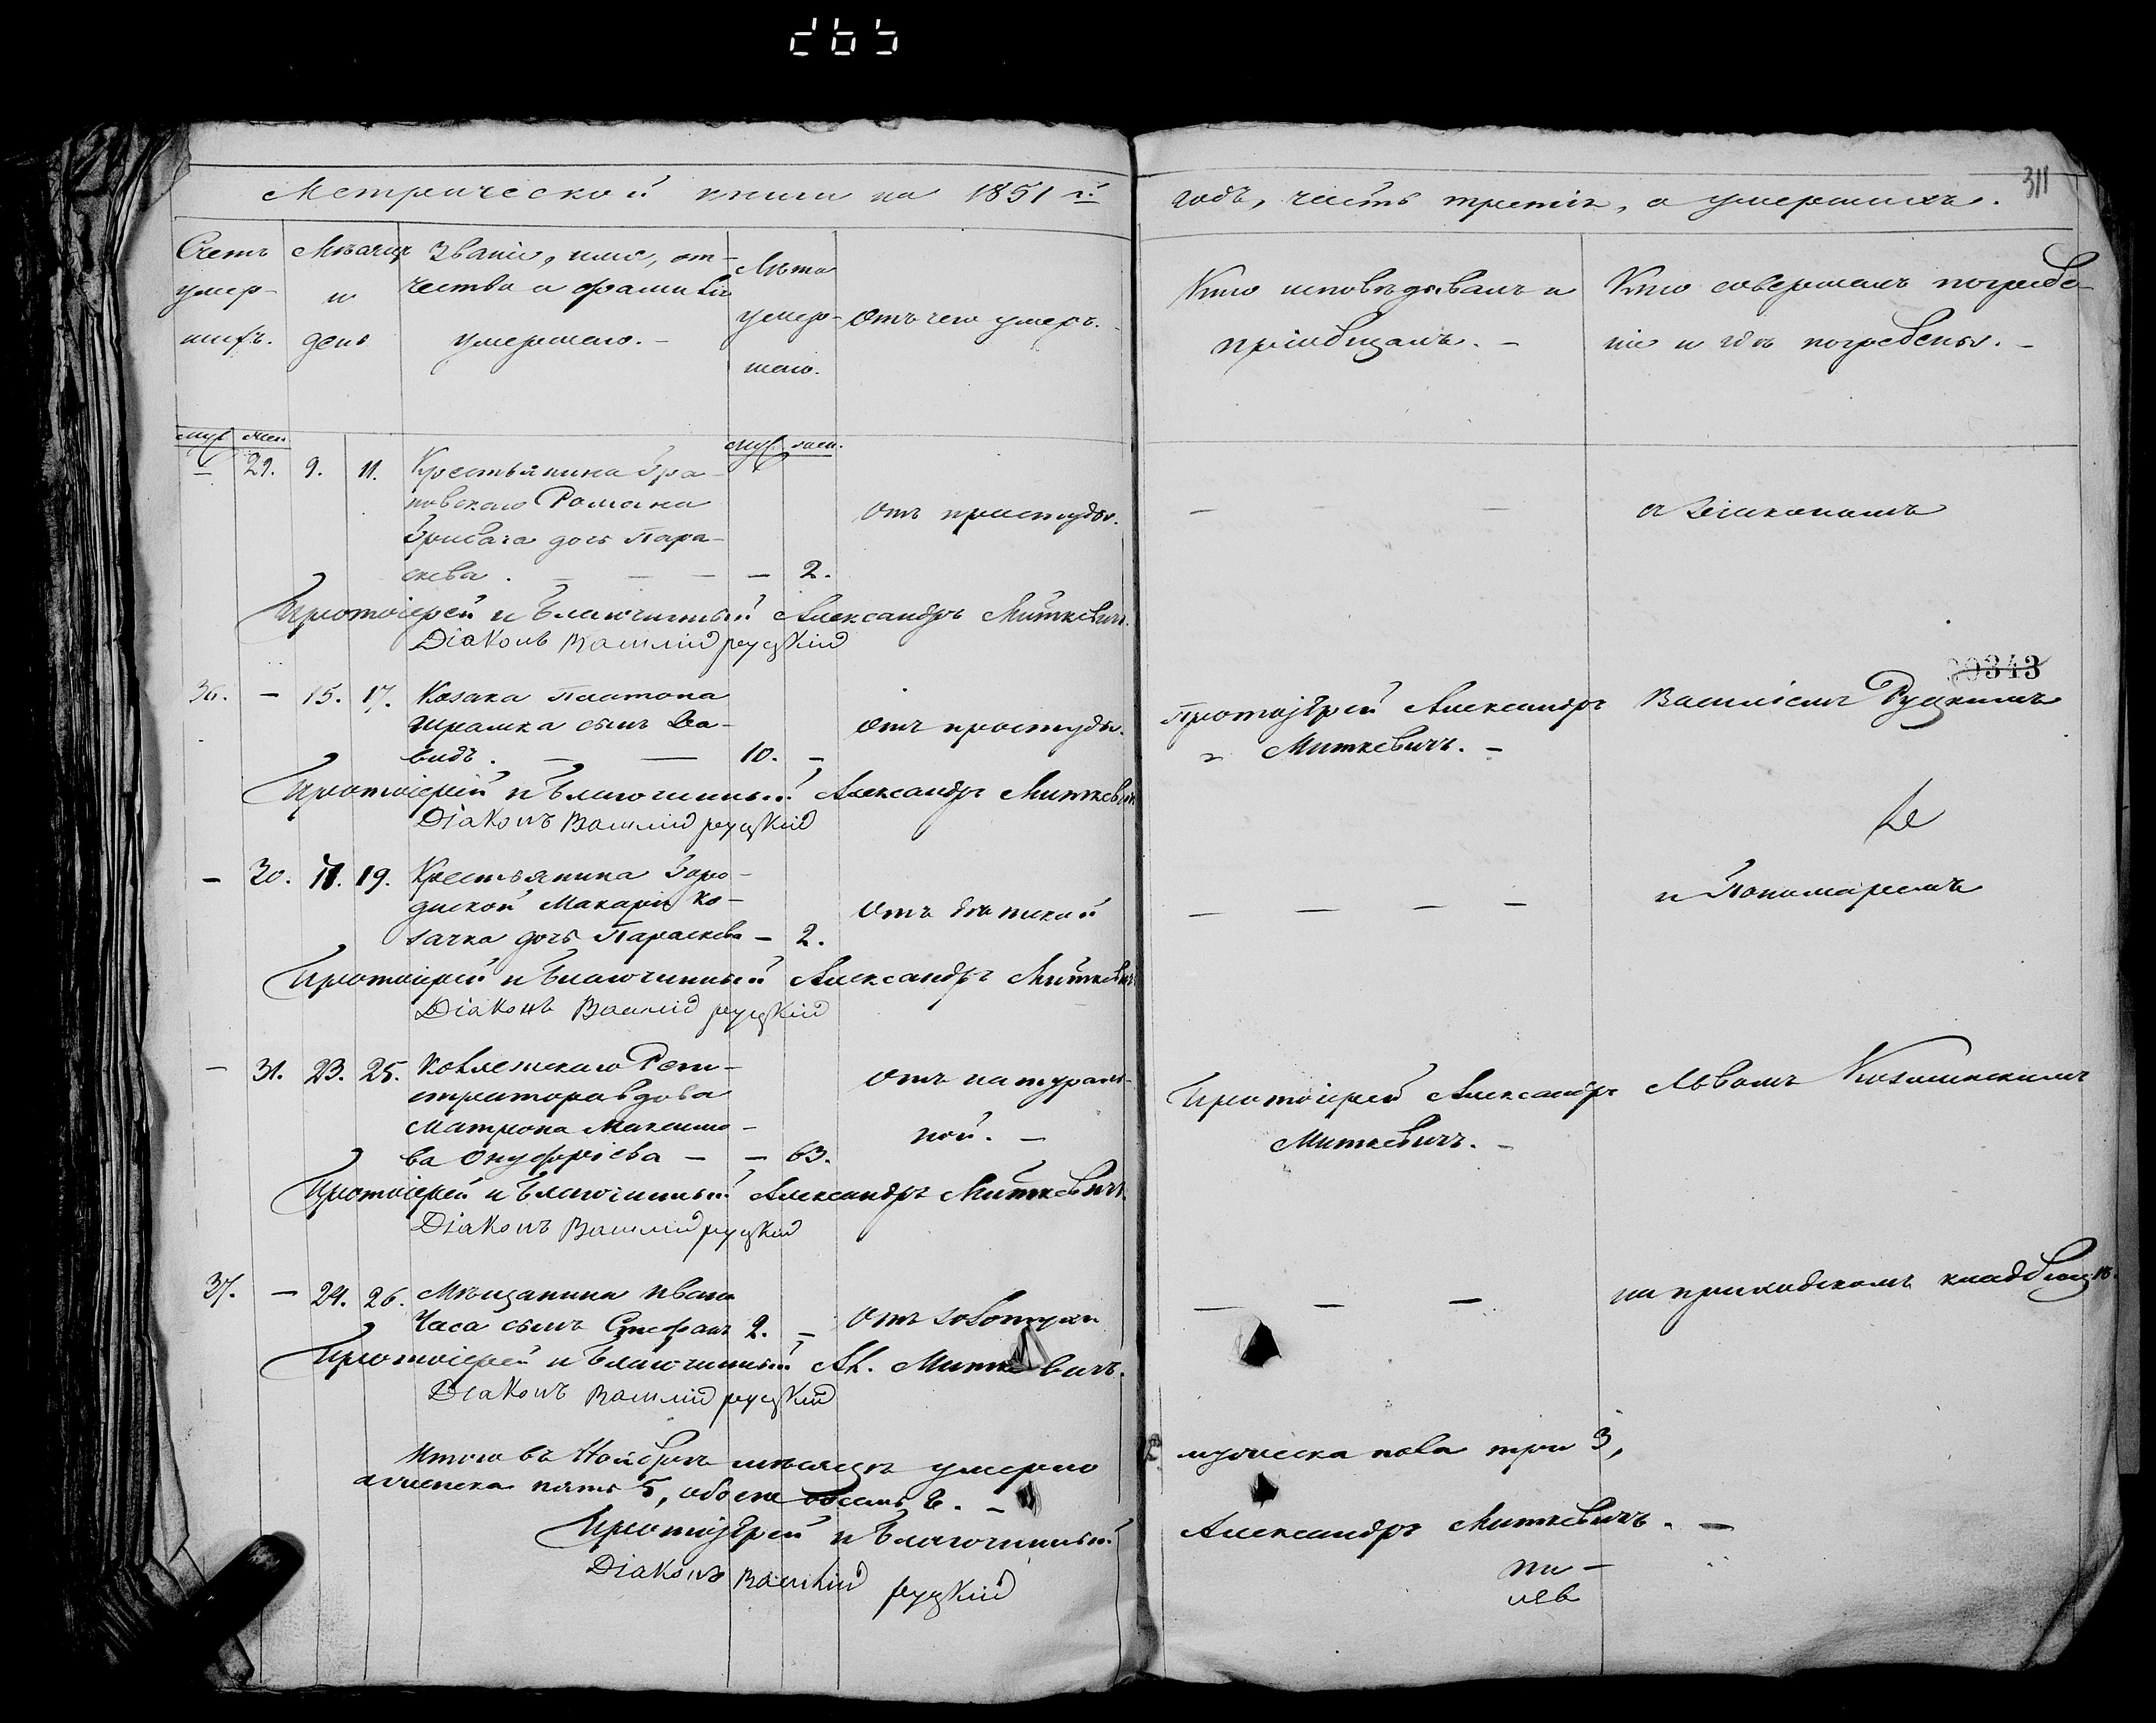 265
Метрической книги на 1851 й
годъ, часть третія, о умершихъ.
311
Счетъ умер- шихъ.
Мѣсяцъ и день
Званіе, имя, от-
чество и фамилія
умершаго. -
Лѣта
умер-
шаго.
Отъ чего умеръ.
Кто исповѣдывалъ и
пріобщалъ. -
Кто совершалъ погребе-
ніе и гдѣ погребены. -
муж жен.
муж жен.
- 29. 9. 11. Крестьянина Гра-
повскаго Романа
Грибача дочь Пара-
скева. - - - - 2.
Отъ простуды.
- - -
съ Діакономъ
Протоіерей и Благочинный Александръ Миткевичъ.
Діаконъ Василій руцкій
30343
36. - 15. 17. Козака Платона
Шрамка сынъ Да-
видъ. - - 10. -
Отъ простуды.
Протоіерей Александръ
Миткевичъ. -
Василіемъ Руцкимъ
Протоіерей и Благочинный Александръ Миткевичъ
Діаконъ Василій руцкій
- 30. 11. 19. Крестьянина Горо-
диской Макарія Ко-
зачка дочь Параскева - 2.
- - - -
и Пономаремъ
Протоіерей и Благочинный Александръ Миткевичъ
Діаконъ Василій руцкій
- 31. 23. 25. Колежскаго Реги-
стратора вдова
Матрона Максимо-
ва Онуфріева - - 63.
Отъ натураль-
ной. -
Протоіерей Александръ
Миткевичъ. -
Львомъ
Протоіерей и Благочинный Александръ Миткевичъ.
Діаконъ Василій руцкій
37. - 24. 26. Мѣщанина Ивана
Часа сынъ Стефанъ 2. -
Отъ золотухи
- - -
на приходскомъ кладбищѣ.
Протоіерей и Благочинный Ал. Миткевичъ.
Діаконъ Василій руцкій
Итого въ Ноябрѣ мѣсяцѣ умерло
мужеска пола три 3,
а женска пять 5, обоего восемь 8. -
Протоіерей и Благочинный
Александръ Миткевичъ. -
Діаконъ Василій руцкій